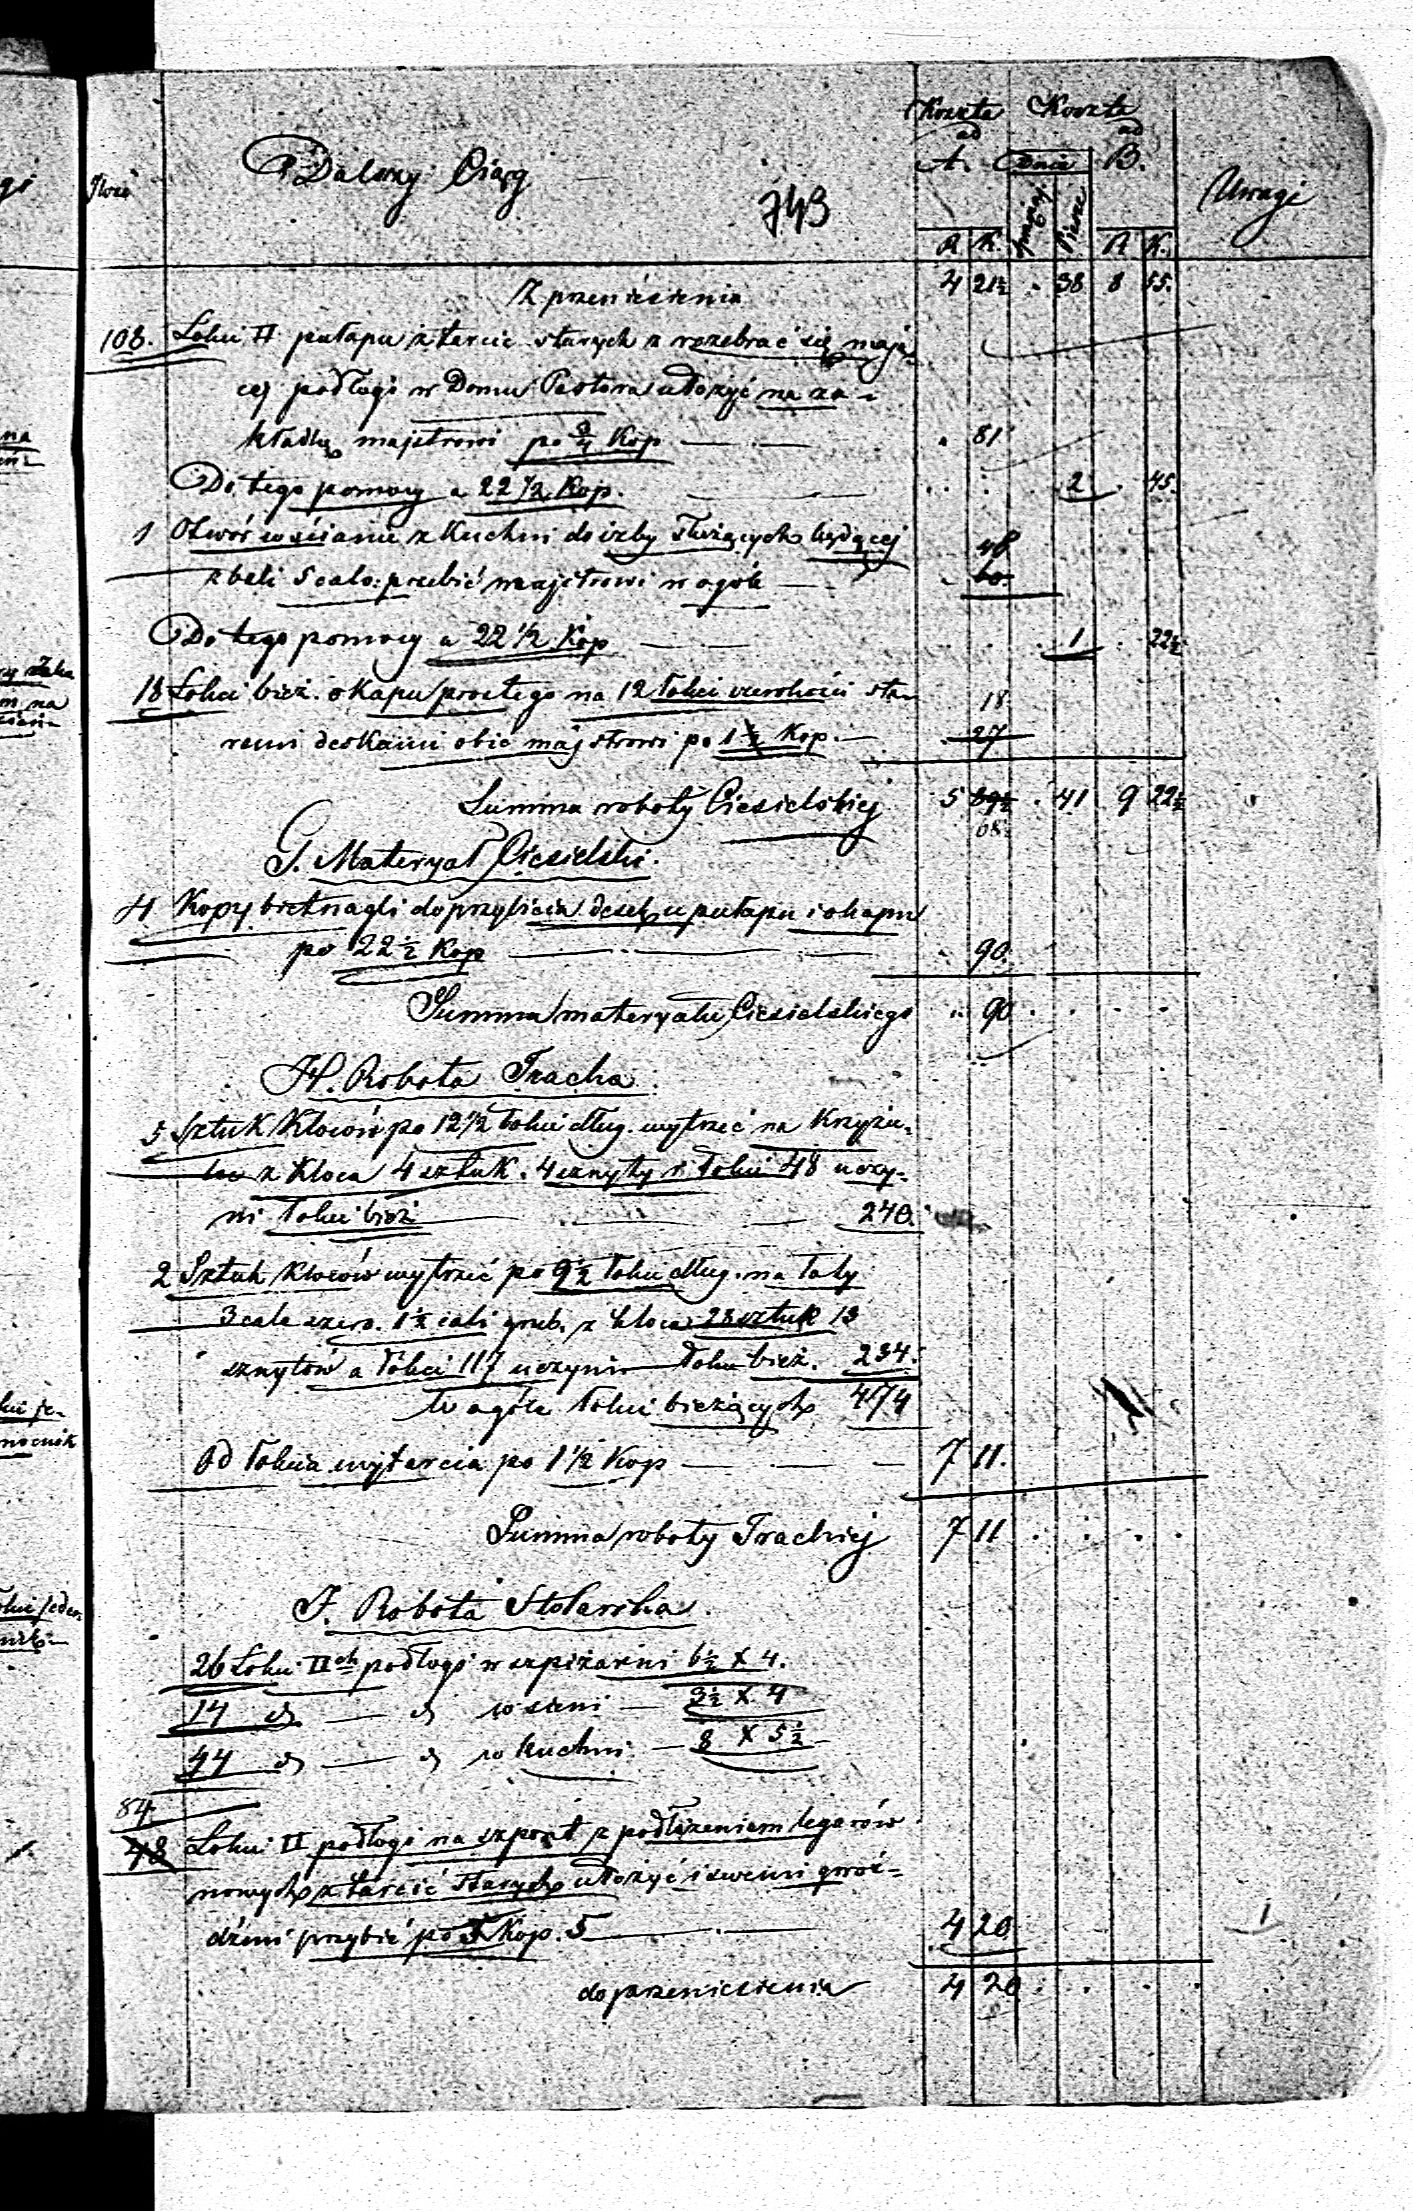 Koszta Koszta
ad ad
A. Dnie B.
Ilość Dalszy Ciąg Uwagi
743
Piesze
R K. R K.
Z przeniesienia 4 21½ . 38 8 55.
108. Łokci □ pułapu z tarcic starych z rozebrać się mają-
cej podłogi w Domu Pastora ułożyć na za-
kładkę majstrowi po ¾ Kop . 81
Do tego pomocy a 22 1/2 Kop. 2 . 45.
1 Otwór w ścianie z Kuchni do izby służących będącej 48
z bali 5 calo: przebić majstrowi w ogóle 60.
Do tego pomocy a 22 1/2 Kop 1 . 22½
18 Łokci bież. okapu prostego na 12 łokci szerokości sta- 18
remi deskami obić majstrowi po 1 ½ Kop. 27
Summa roboty Ciesielskiej 5 89½ . 41 9 22½
68.
G. Materyał Ciesielski.
4 Kopy bretnagli do przybicia desek u pułapu i okapu
po 22 ½ Kop 90.
Summa materyału Ciesielskiego 90
H. Robota Tracha.
5 Sztuk Kloców po 12 1/2 łokci dług. wytrzeć na Krzyżu-
lce z Kloca 4 sztuk. 4 sznyty a łokci 48 uczy-
ni łokci bież 240.
2 Sztuk Kloców wytrzeć po 9½ łokci dług. na łaty
3 cale szer. 1½ cali grub. z kloca 28 sztuk 13
sznytów a łokci 117 uczyni łokci bież. 234.
W ogóle łokci bieżących 474
Od łokcia wytarcia po 1 1/2 Kop 7 11.
Summa roboty Trackiej 7 11
I. Robota Stolarska.
26 Łokci □ch podłogi w szpiżarni 6½ X 4.
14 d d w sieni 3½ X 4
44 d d w kuchni 8 X 5½
84
48 Łokci □ podłogi na szpont z podłożeniem legarów
nowych z tarcic starych ułożyć i swemi gwoź-
dźmi przybić po Kop. 5 4 20
do przeniesienia 4 20